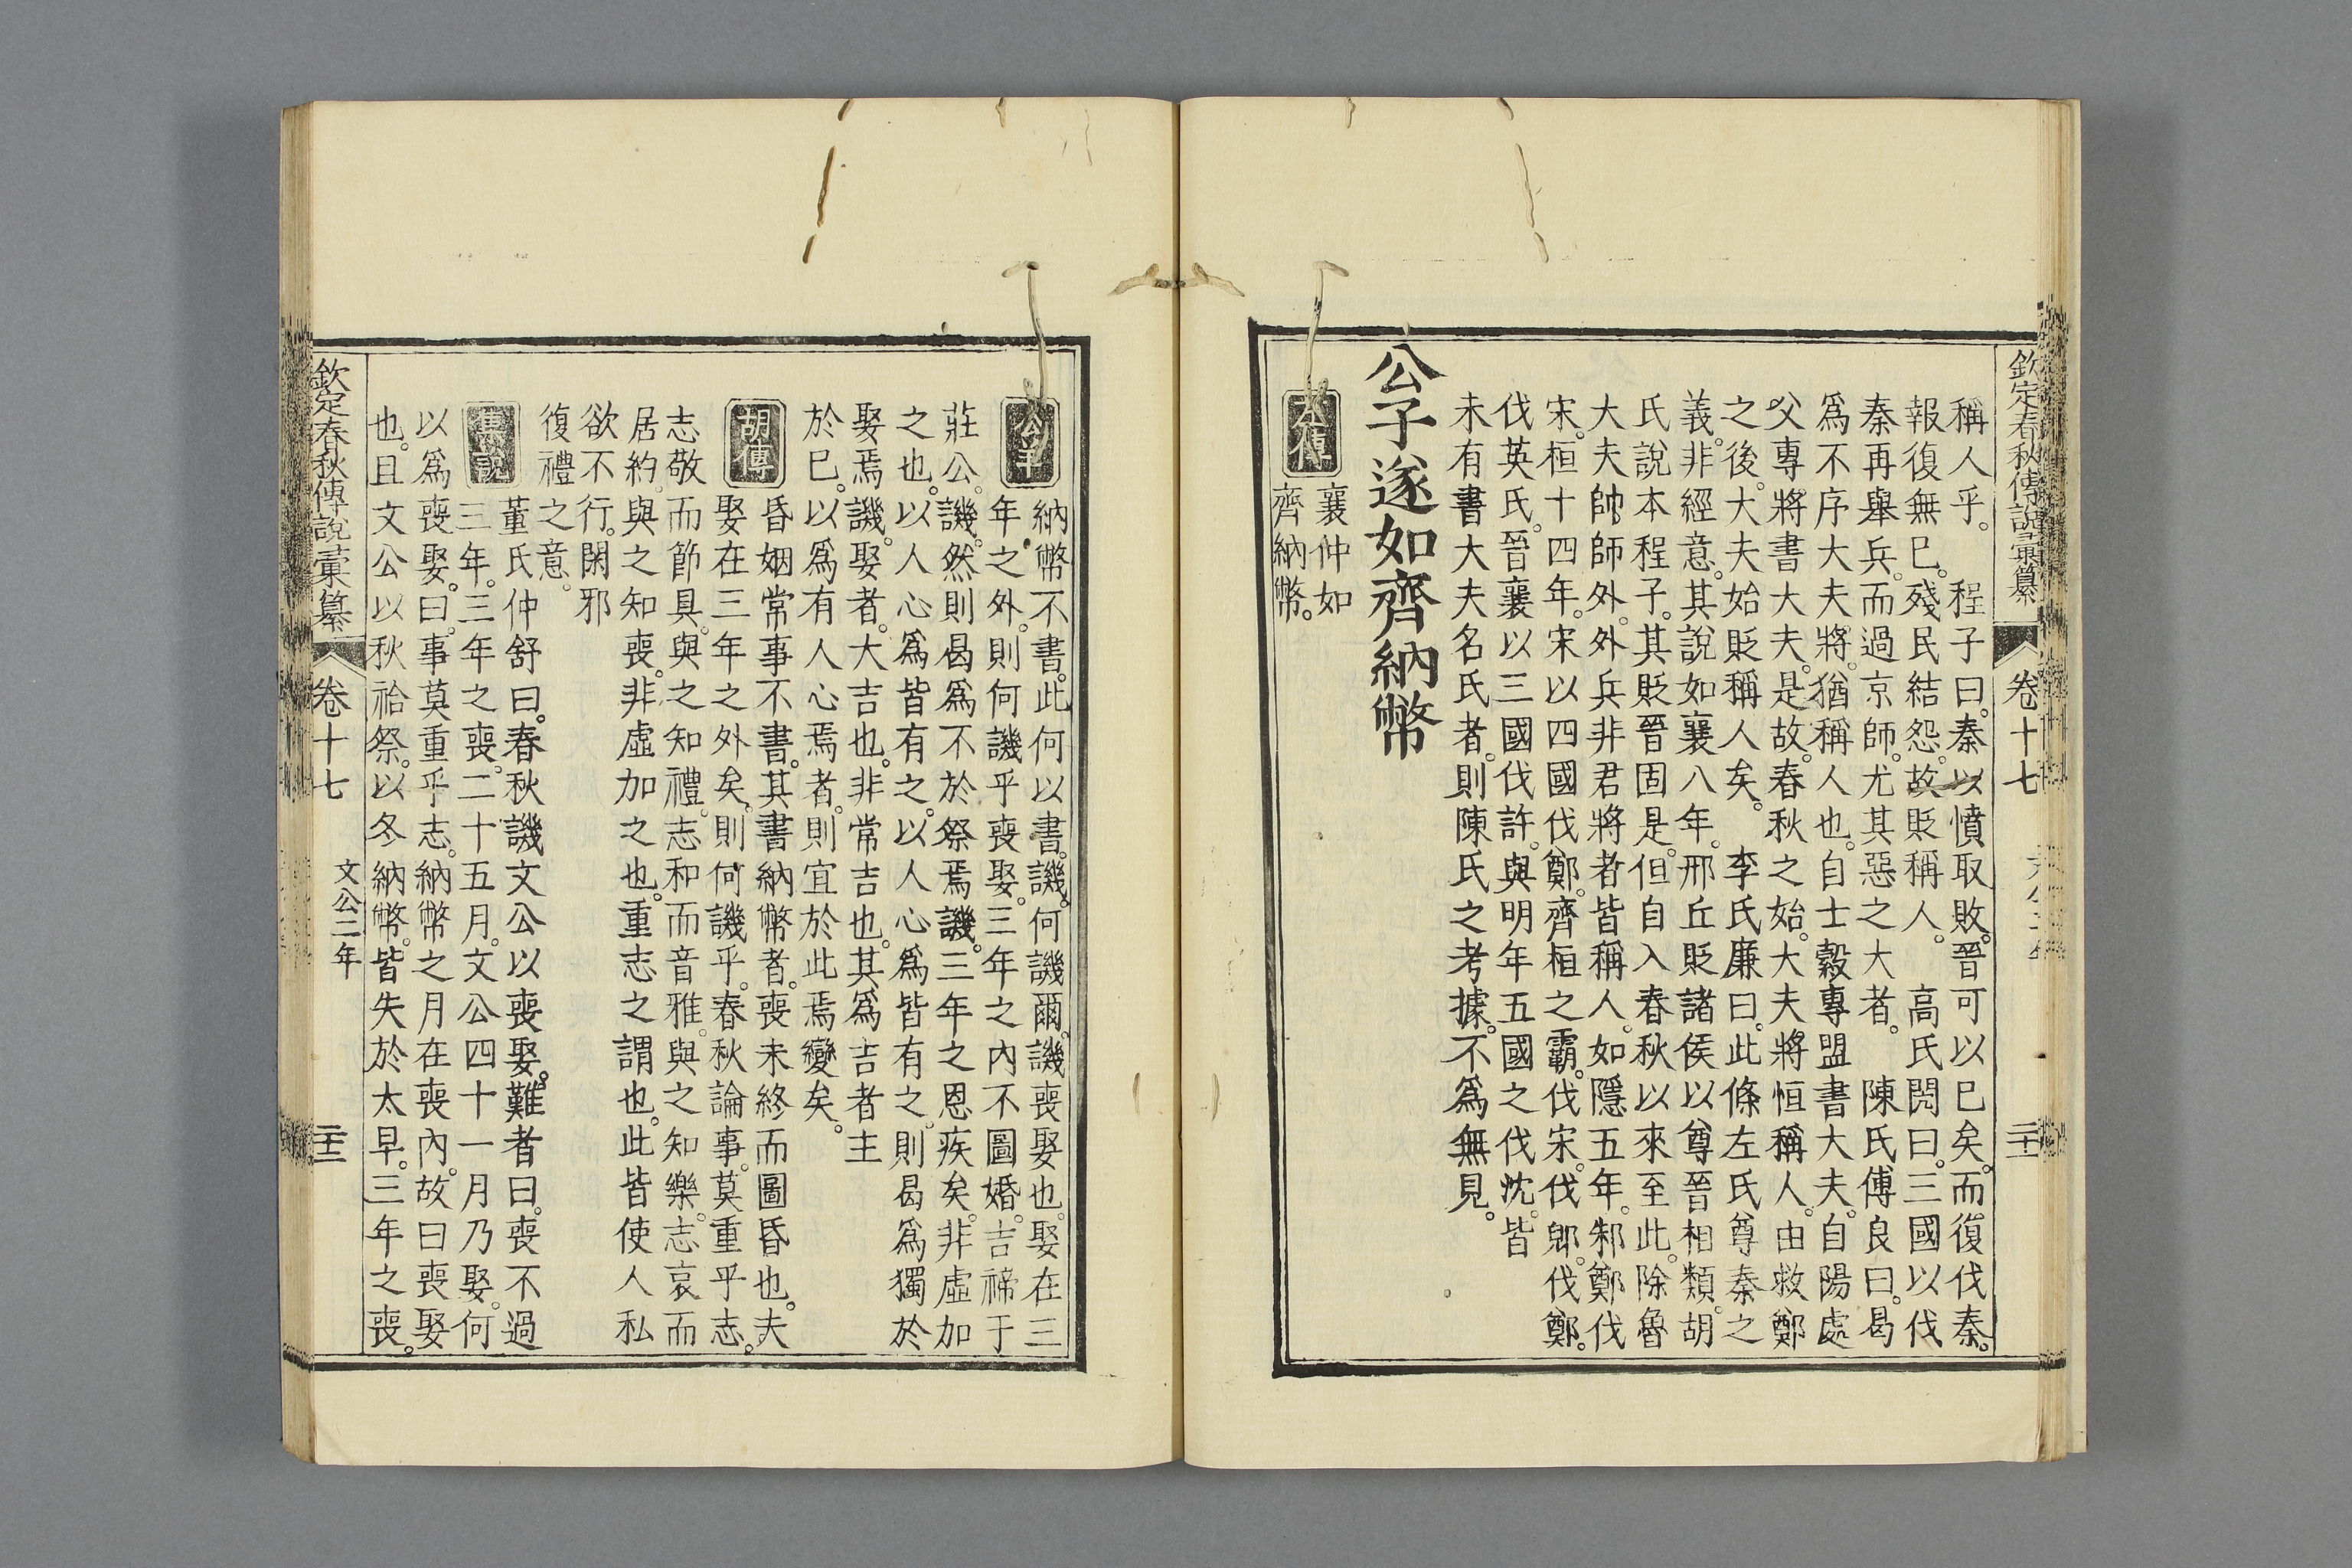 欽定春秋傳說彙纂 卷十七
稱人乎。　程子曰。秦以憤取敗。晉可以已矣。而復伐秦。
報復無已。殘民結怨。故貶稱人。　高氏閌曰。三國以伐
秦再舉兵。而過京師。尤其惡之大者。　陳氏傅良曰。曷
爲不序大夫。將。猶稱人也。自士縠專盟書大夫。自陽處
父專將書大夫。是故。春秋之始。大夫將恒稱人。由救鄭
之後。大夫始貶稱人矣。　李氏廉曰。此條左氏尊秦之
義。非經意。其說如襄八年。邢丘貶諸侯以尊晉相類。胡
氏說本程子。其貶晉固是。但自入春秋以來至此。除魯
大夫帥師外。外兵非君將者皆稱人。如隱五年。邾鄭伐
宋。桓十四年。宋以四國伐鄭。齊桓之霸。伐宋。伐郳。伐鄭。
伐英氏。晉襄以三國伐許。與明年五國之伐沈。皆
未有書大夫名氏者。則陳氏之考據。不爲無見。
公子遂如齊納幣
左傳
襄仲如
齊納幣。
公羊
納幣不書。此何以書。譏。何譏爾。譏喪娶也。娶在三
年之外。則何譏乎喪娶。三年之內不圖婚。吉禘于
莊公。譏。然則曷爲不於祭焉譏。三年之恩疾矣。非虛加
之也。以人心爲皆有之。以人心爲皆有之。則曷爲獨於
娶焉譏。娶者。大吉也。非常吉也。其爲吉者主
於已。以爲有人心焉者。則宜於此焉變矣。
胡傳
昏姻常事不書。其書納幣者。喪未終而圖昏也。夫
娶在三年之外矣。則何譏乎。春秋論事。莫重乎志。
志敬而節具。與之知禮。志和而音雅。與之知樂。志哀而
居約。與之知喪。非虛加之也。重志之謂也。此皆使人私
欲不行。閑邪
復禮之意。
集說
董氏仲舒曰。春秋譏文公以喪娶。難者曰。喪不過
三年。三年之喪。二十五月。文公四十一月乃娶。何
以爲喪娶。曰。事莫重乎志。納幣之月在喪內。故曰喪娶
也。且文公以秋祫祭。以冬納幣。皆失於太早。三年之喪。
欽定春秋傳說彙纂 卷十七 文公二年 二十二